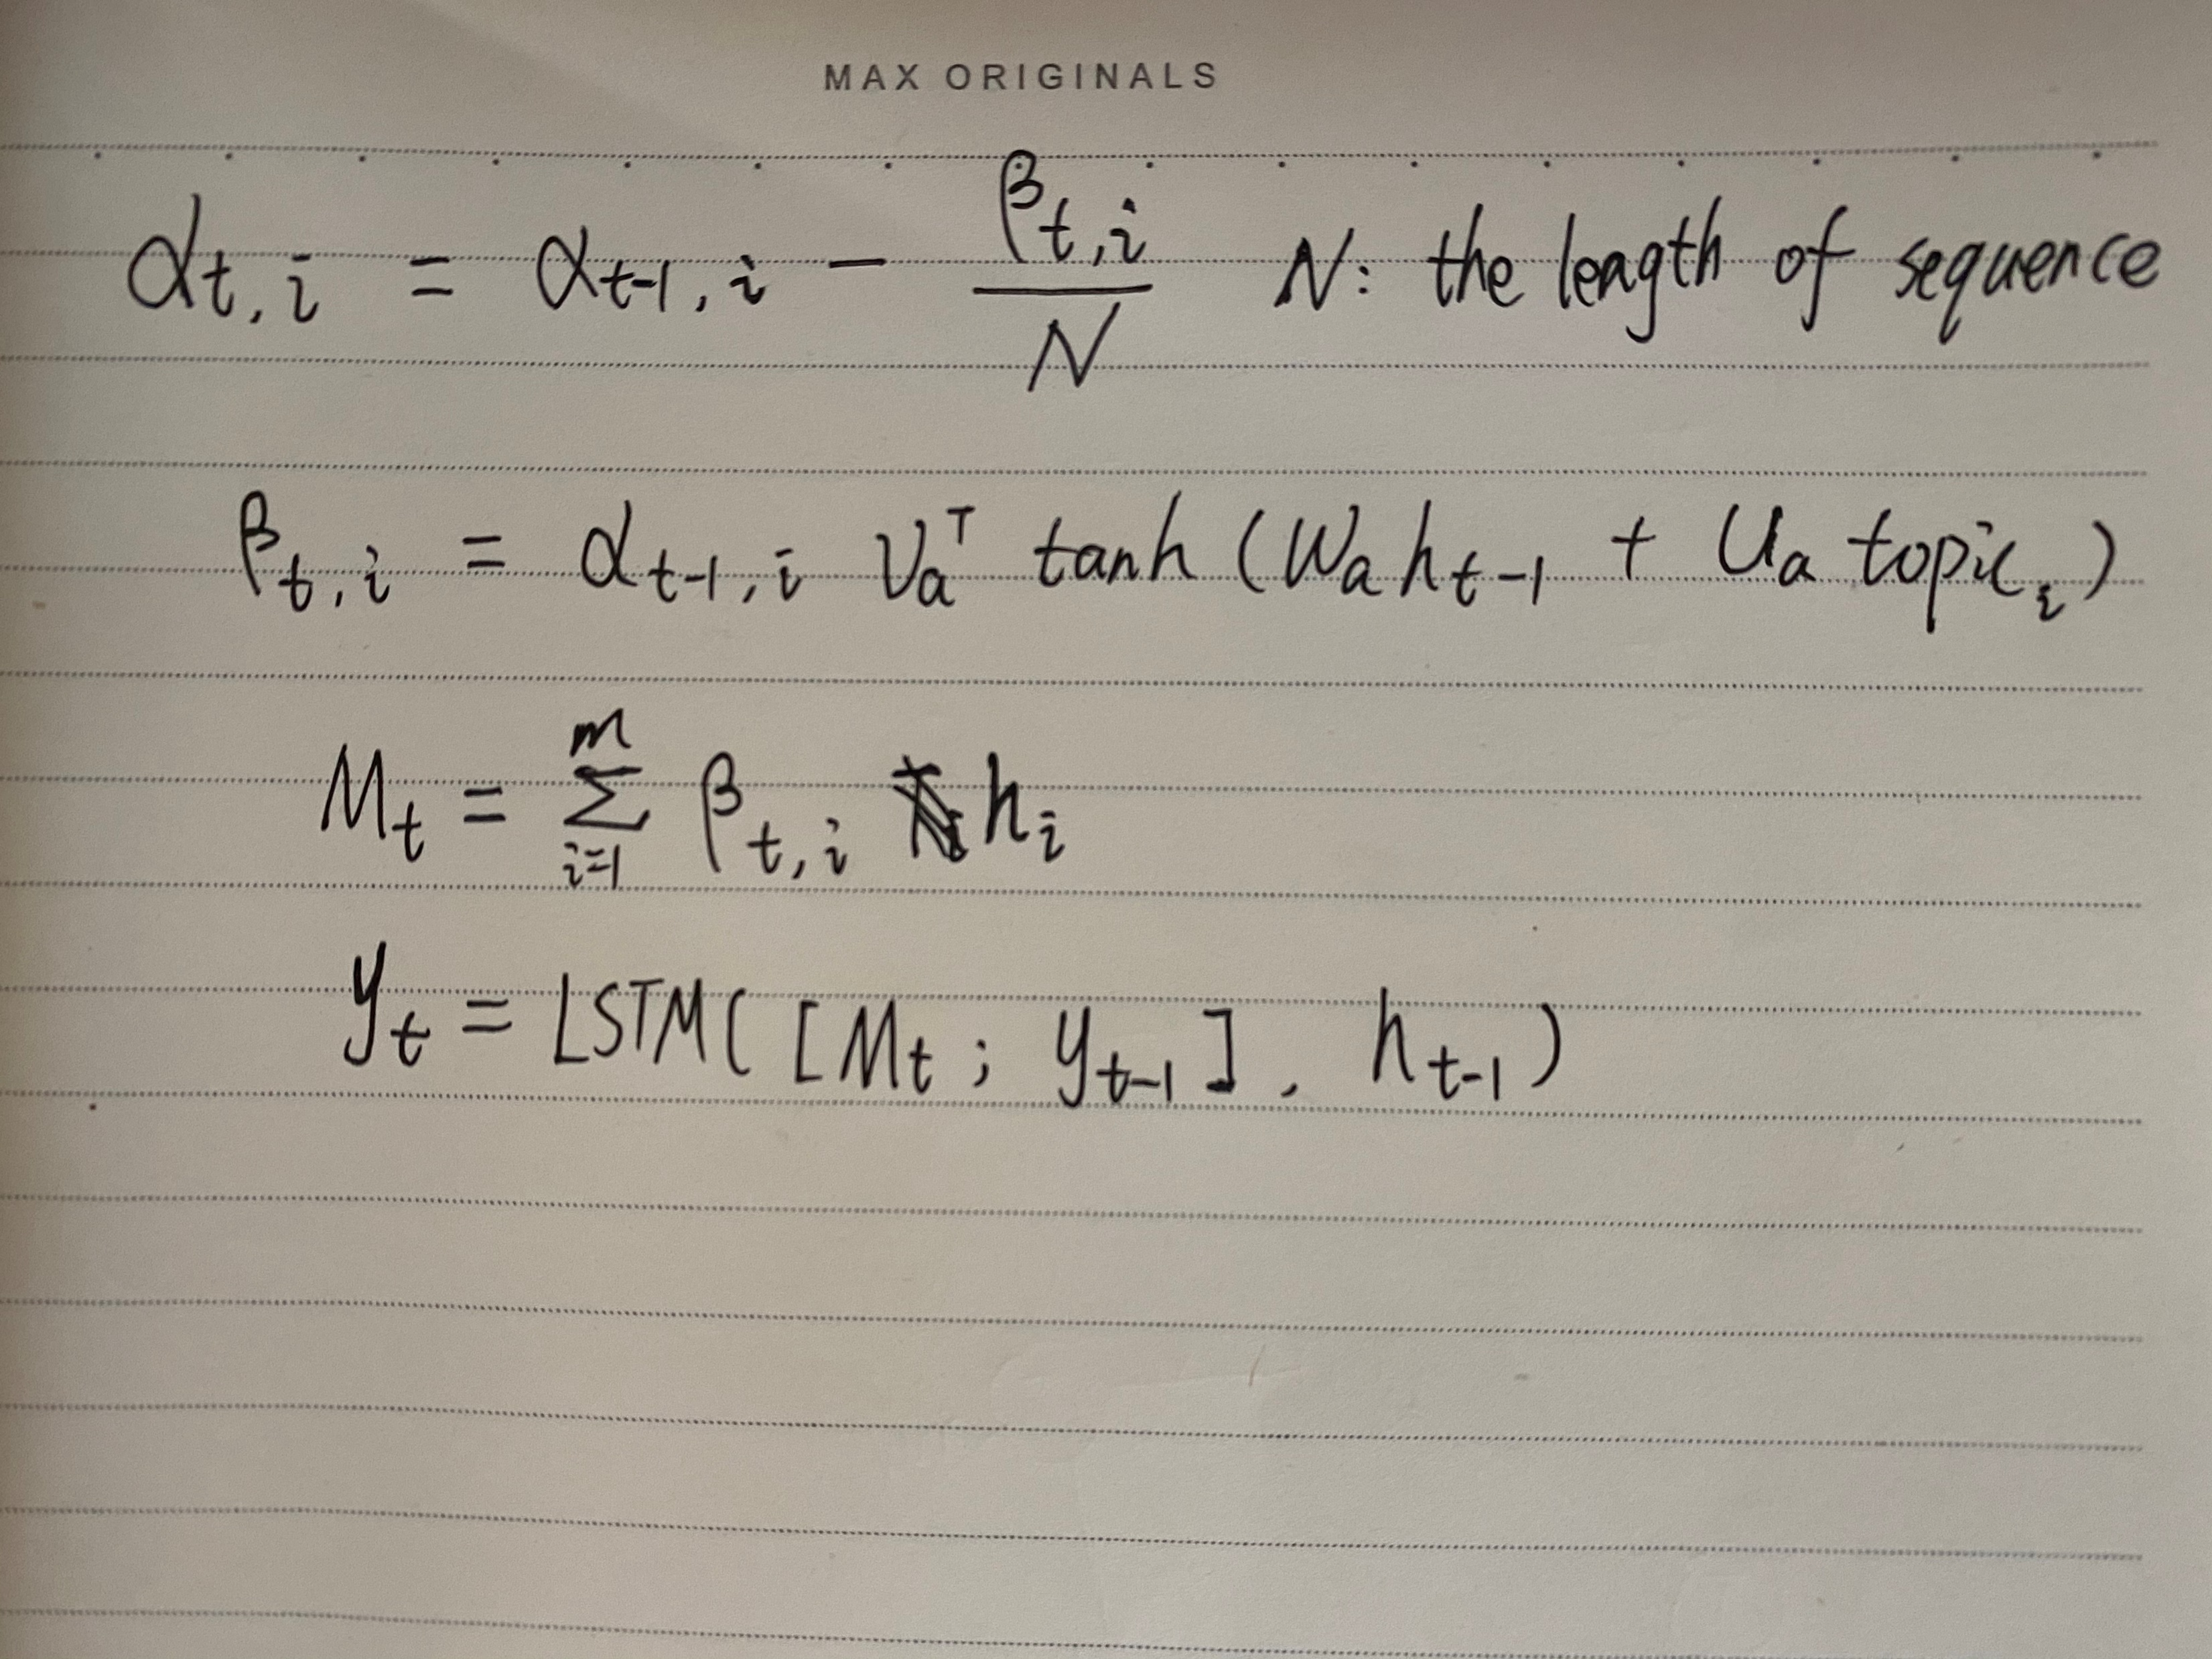 MAX ORIGINALS
α_{t,i} = α_{t-1,i} - β_{t,i} / N   N: the length of sequence
β_{t,i} = α_{t-1,i} v_a^T tanh (W_a h_{t-1} + U_a topic_i)
M_t = Σ_{i=1}^{m} β_{t,i} h_i
y_t = LSTM( [M_t ; y_{t-1}] , h_{t-1} )